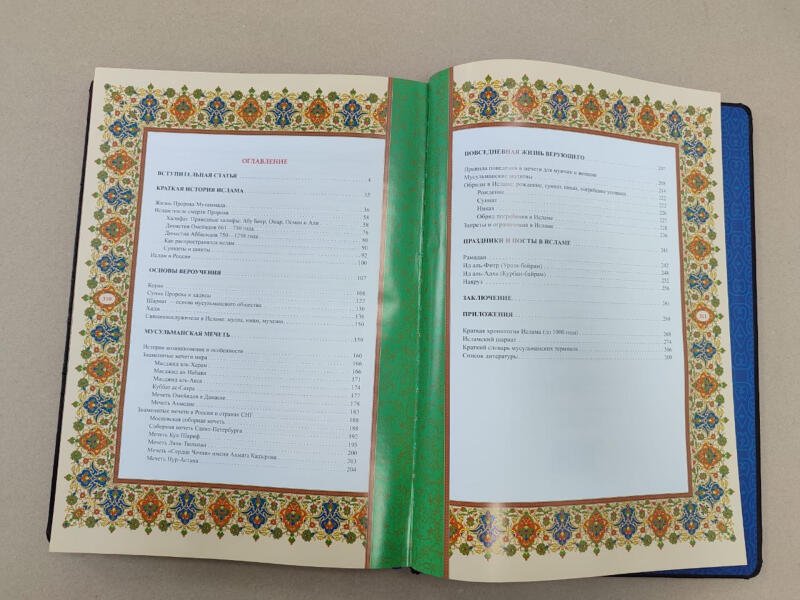 ОГЛАВЛЕНИЕ
ВСТУПИТЕЛЬНАЯ СТАТЬЯ 4
КРАТКАЯ ИСТОРИЯ ИСЛАМА 35
Жизнь Пророка Мухаммада 36
Ислам после смерти Пророка 58
Халифат. Праведные халифы: Абу Бекр, Омар, Осман и Али 58
Династия Омейядов 661—750 года 76
Династия Аббасидов 750—1258 года 80
Как распространялся ислам 90
Сунниты и шииты 92
Ислам в России 100
ОСНОВЫ ВЕРОУЧЕНИЯ 107
Коран 108
Сунна Пророка и хадисы 122
Шариат — основа мусульманского общества 130
Хадж 136
Священнослужители в Исламе: мулла, имам, муэдзин 150
МУСУЛЬМАНСКАЯ МЕЧЕТЬ 159
История возникновения и особенности 160
Знаменитые мечети мира 166
Масджид аль-Харам 166
Масджид ан-Набави 171
Масджид аль-Акса 174
Куббат ас-Сахра 177
Мечеть Омейядов в Дамаске 178
Мечеть Ахмедие 183
Знаменитые мечети в России и странах СНГ 188
Московская соборная мечеть 188
Соборная мечеть Санкт-Петербурга 192
Мечеть Кул Шариф 195
Мечеть Ляля-Тюльпан 200
Мечеть «Сердце Чечни» имени Ахмата Кадырова 203
Мечеть Нур-Астана 204
310
ПОВСЕДНЕВНАЯ ЖИЗНЬ ВЕРУЮЩЕГО 207
Правила поведения в мечети для мужчин и женщин 208
Мусульманские молитвы 214
Обряды в Исламе: рождение, суннат, никах, погребение усопших 222
Рождение 222
Суннат 223
Никах 226
Обряд погребения в Исламе 228
Запреты и ограничения в Исламе 236
ПРАЗДНИКИ И ПОСТЫ В ИСЛАМЕ 241
Рамадан 242
Ид аль-Фитр (Ураза-байрам) 248
Ид аль-Адха (Курбан-байрам) 252
Навруз 256
ЗАКЛЮЧЕНИЕ 261
ПРИЛОЖЕНИЯ
Краткая хронология Ислама (до 1000 года) 268
Исламский шариат 274
Краткий словарь мусульманских терминов 306
Список литературы 309
311